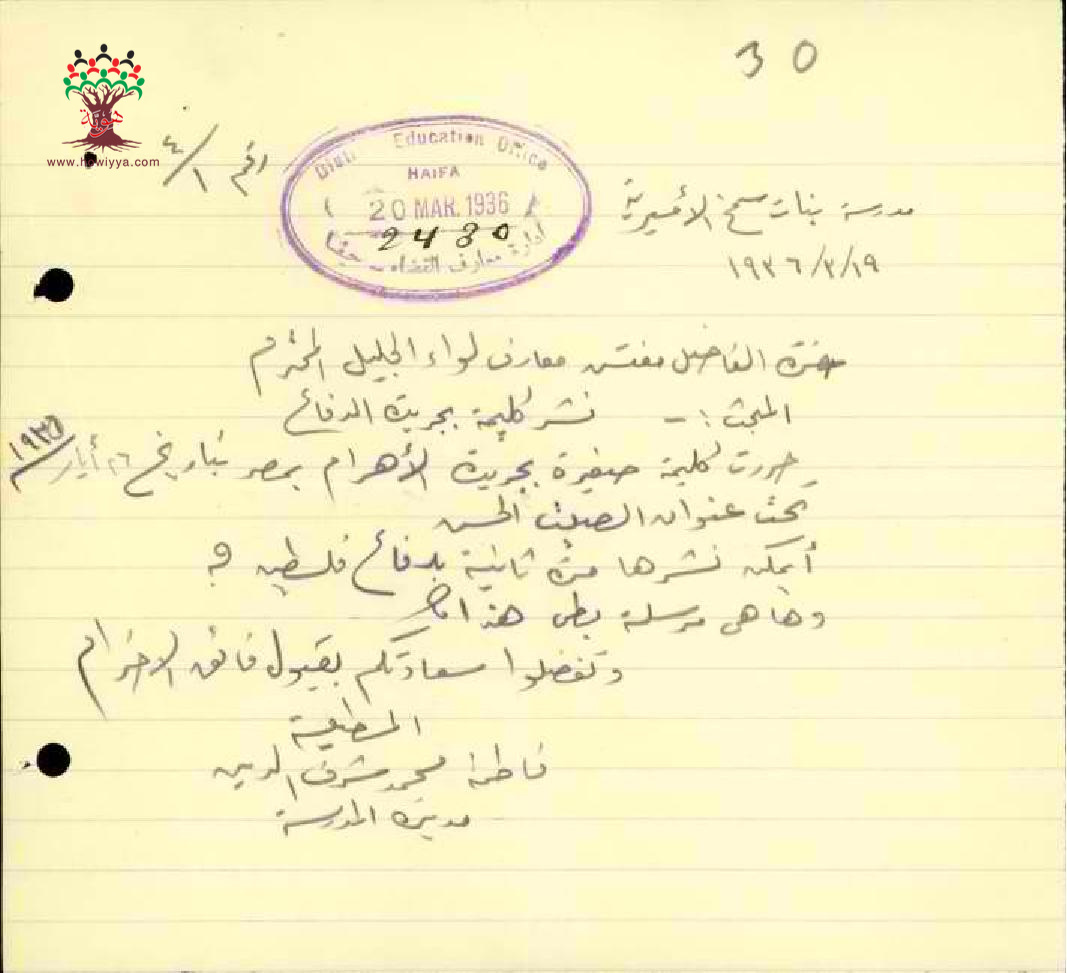 30
هوية
www.howiyya.com
رقم ٤/١
Education Office
HAIFA
20 MAR. 1936
2430
ادارة معارف القضاء حيفا
مدرسة بنات سمخ الأميرية
١٩٣٦/٣/١٩
حضرة الفاضل مفتش معارف لواء الجليل المحترم
المبحث :- نشر كليمة بجريدة الدفاع
حررت كليمة صغيرة بجريدة الأهرام بمصر بتاريخ ٢٦ أيار ١٩٣٥
تحت عنوان الصيت الحسن
أيمكن نشرها مرة ثانية بدفاع فلسطين ؟
وها هي مرسلة بطي هذا
وتفضلوا سعادتكم بقبول فائق الاحترام
المطيعة
فاطمة محمد شرف الدين
مديرة المدرسة